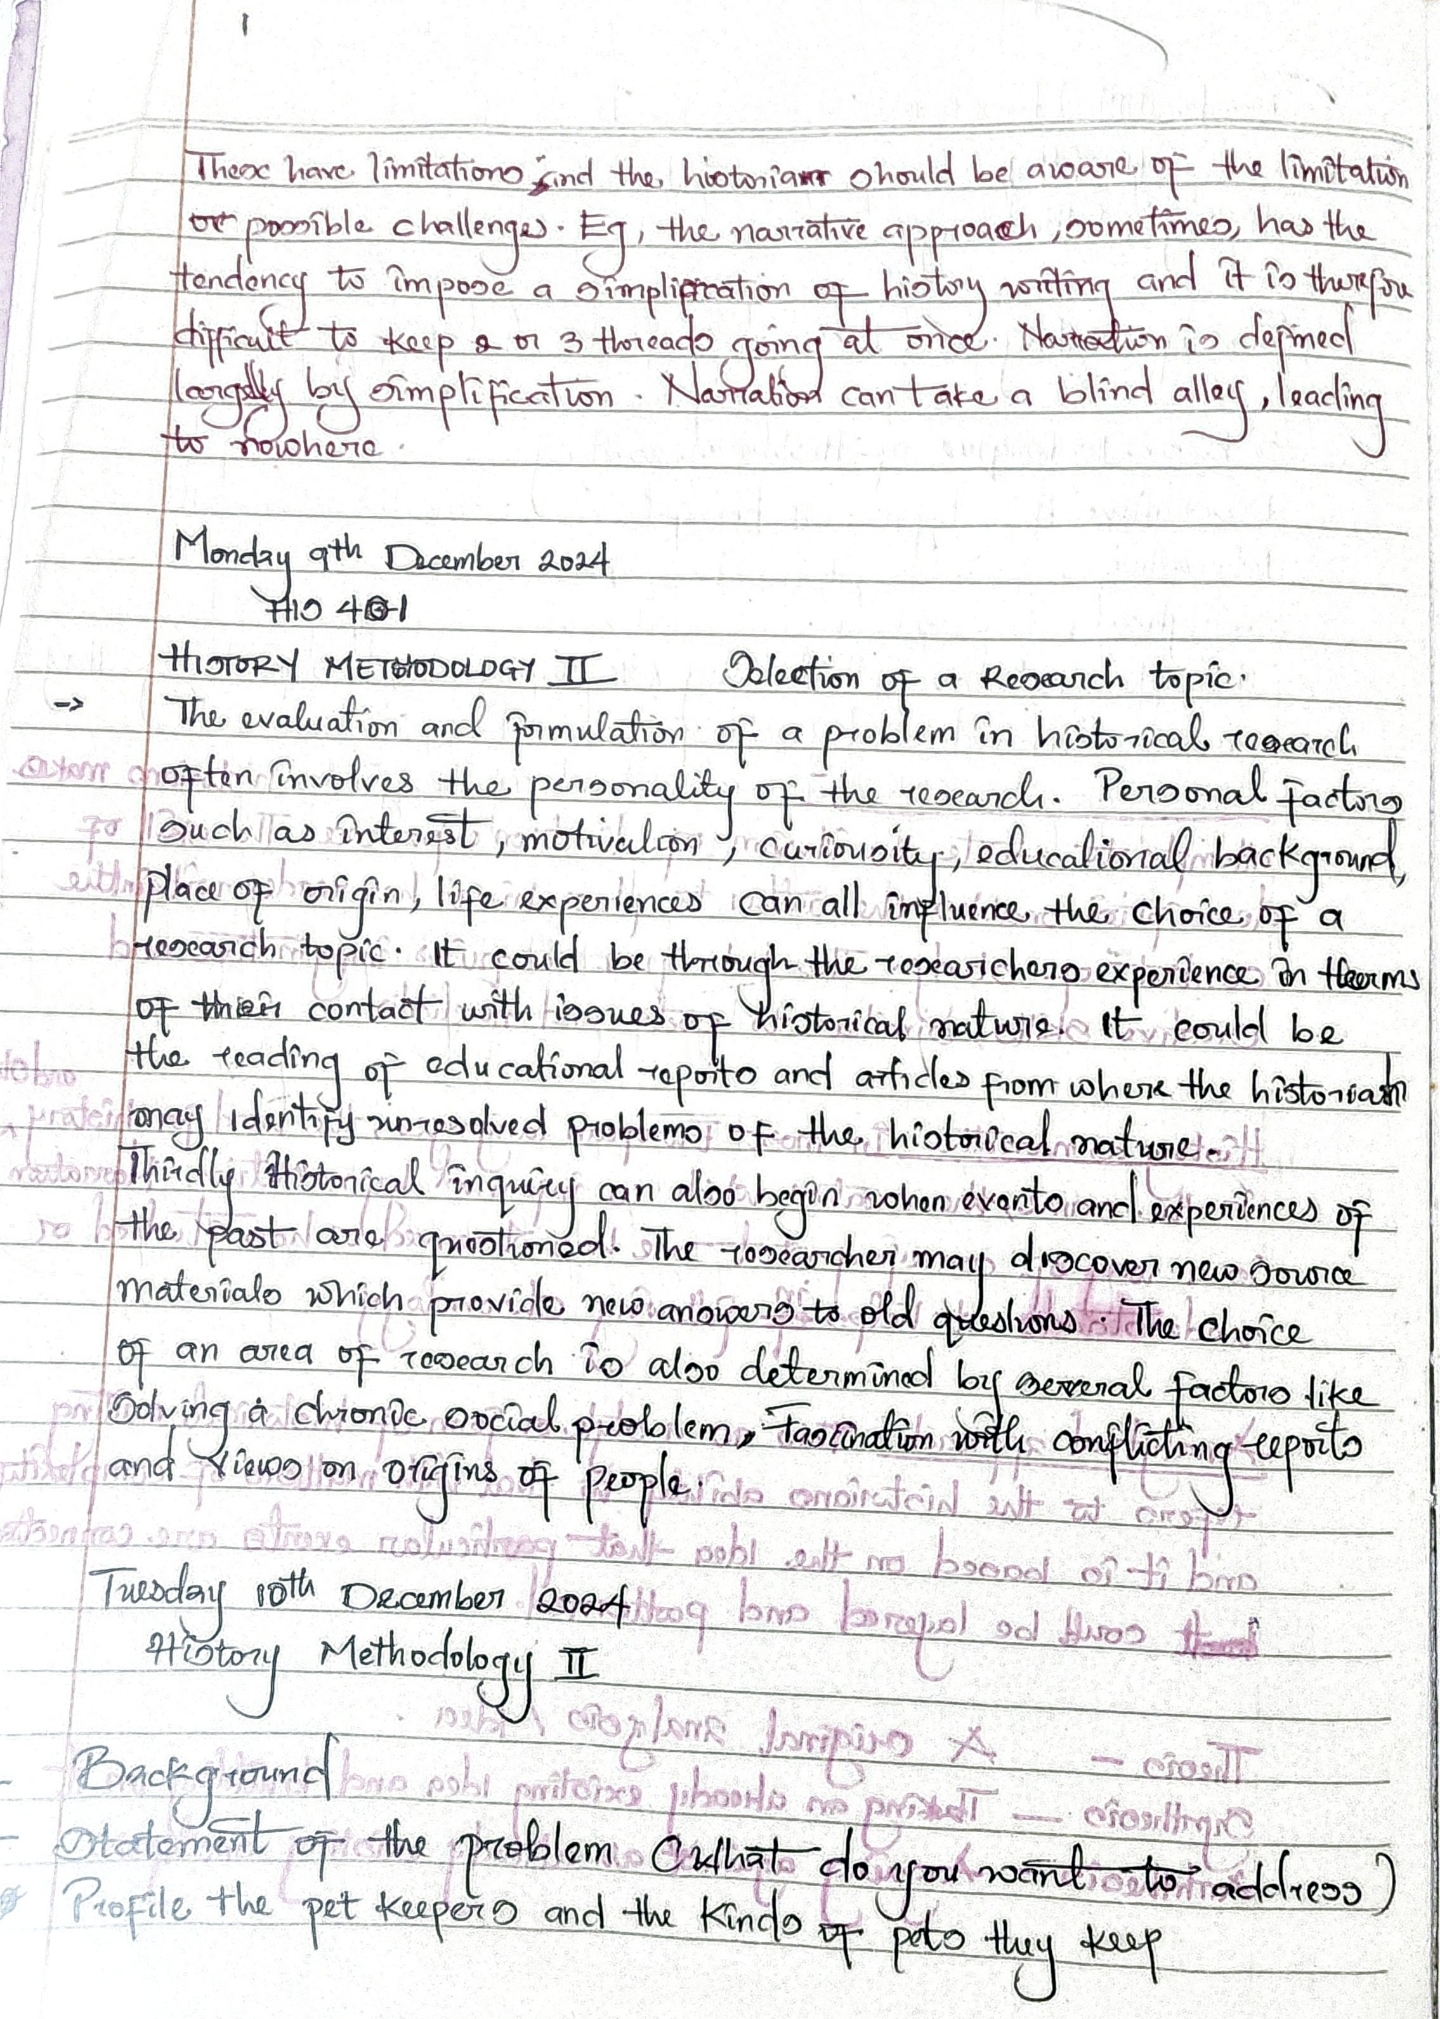 These have limitations and the historian should be aware of the limitation
or possible challenges. Eg, the narrative approach, sometimes, has the
tendency to impose a simplification of history writing and it is therefore
difficult to keep 2 or 3 threads going at once. Narration is defined
largely by simplification. Narration can take a blind alley, leading
to nowhere.
Monday 9th December 2024
HIS 401
HISTORY METHODOLOGY II Selection of a Research topic.
-> The evaluation and formulation of a problem in historical research
often involves the personality of the research. Personal factors
such as interest, motivation, curiousity, educational background,
place of origin, life experiences can all influence the choice of a
research topic. It could be through the researchers experience in therms
of their contact with issues of historical nature. It could be
the reading of educational reports and articles from where the historian
may identify unresolved problems of the historical nature.
Thirdly Historical inquiry can also begin when events and experiences of
the past are questioned. The researcher may discover new source
materials which provide new answers to old questions. The choice
of an area of research is also determined by several factors like
Solving a chronic social problem, Fascination with conflicting reports
and views on origins of people.
Tuesday 10th December 2024
History Methodology II
- Background
- Statement of the problem (what do you want to address)
Profile the pet keepers and the kinds of pets they keep